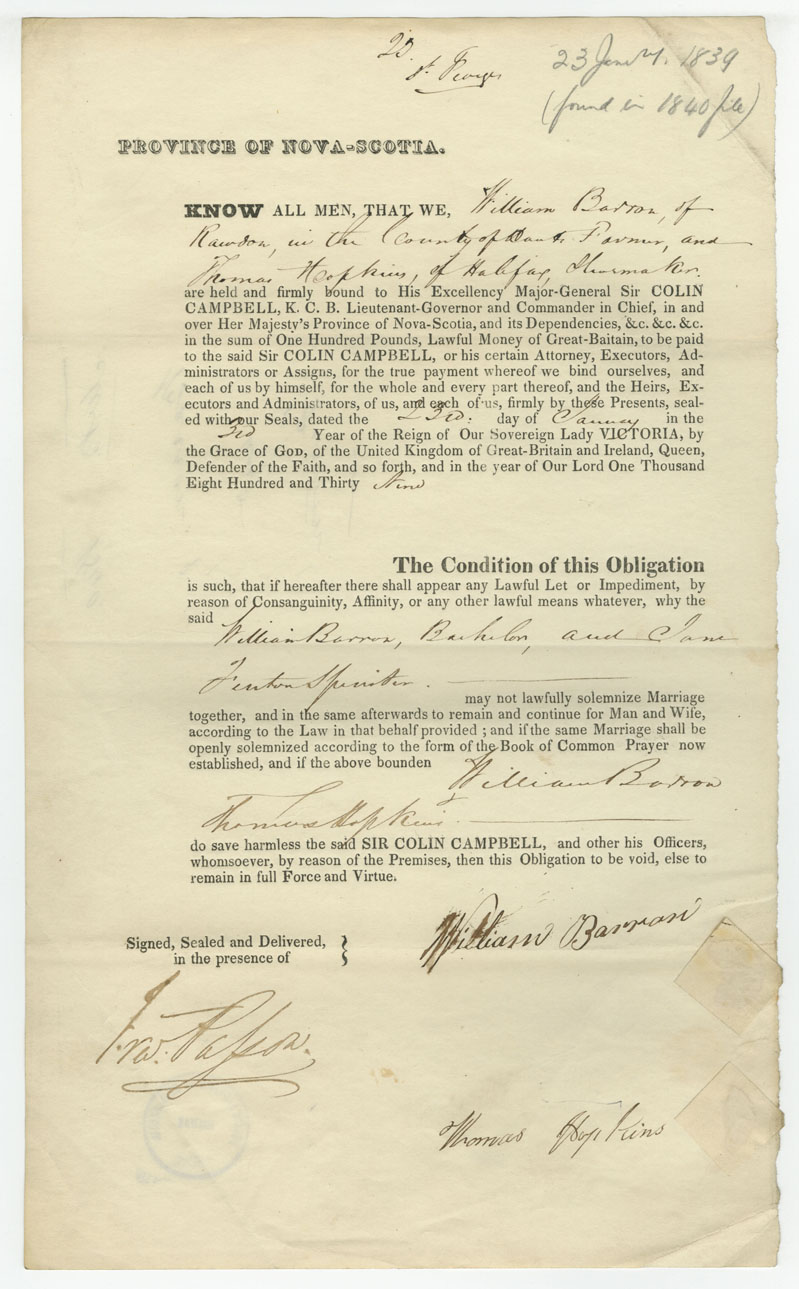 23
St. Georges
23 Jany. 1839
(found in 1840 file)
PROVINCE OF NOVA-SCOTIA.
KNOW ALL MEN, THAT WE, William Barron, of
Rawdon, in the County of Hants Farmer, and
Thomas Hopkins, of Halifax, Shoemaker.
are held and firmly bound to His Excellency Major-General Sir COLIN
CAMPBELL, K. C. B. Lieutenant-Governor and Commander in Chief, in and
over Her Majesty's Province of Nova-Scotia, and its Dependencies, &c. &c. &c.
in the sum of One Hundred Pounds, Lawful Money of Great-Baitain, to be paid
to the said Sir COLIN CAMPBELL, or his certain Attorney, Executors, Ad-
ministrators or Assigns, for the true payment whereof we bind ourselves, and
each of us by himself, for the whole and every part thereof, and the Heirs, Ex-
ecutors and Administrators, of us, and each of us, firmly by these Presents, seal-
ed with our Seals, dated the 23rd. day of January in the
3rd Year of the Reign of Our Sovereign Lady VICTORIA, by
the Grace of GOD, of the United Kingdom of Great-Britain and Ireland, Queen,
Defender of the Faith, and so forth, and in the year of Our Lord One Thousand
Eight Hundred and Thirty Nine
The Condition of this Obligation
is such, that if hereafter there shall appear any Lawful Let or Impediment, by
reason of Consanguinity, Affinity, or any other lawful means whatever, why the
said William Barron, Bachelor, and Jane
Fenton Spinster.
may not lawfully solemnize Marriage
together, and in the same afterwards to remain and continue for Man and Wife,
according to the Law in that behalf provided ; and if the same Marriage shall be
openly solemnized according to the form of the Book of Common Prayer now
established, and if the above bounden William Barron
Thomas Hopkins
do save harmless the said SIR COLIN CAMPBELL, and other his Officers,
whomsoever, by reason of the Premises, then this Obligation to be void, else to
remain in full Force and Virtue.
Signed, Sealed and Delivered,
in the presence of
William Barron
Thomas Hopkins